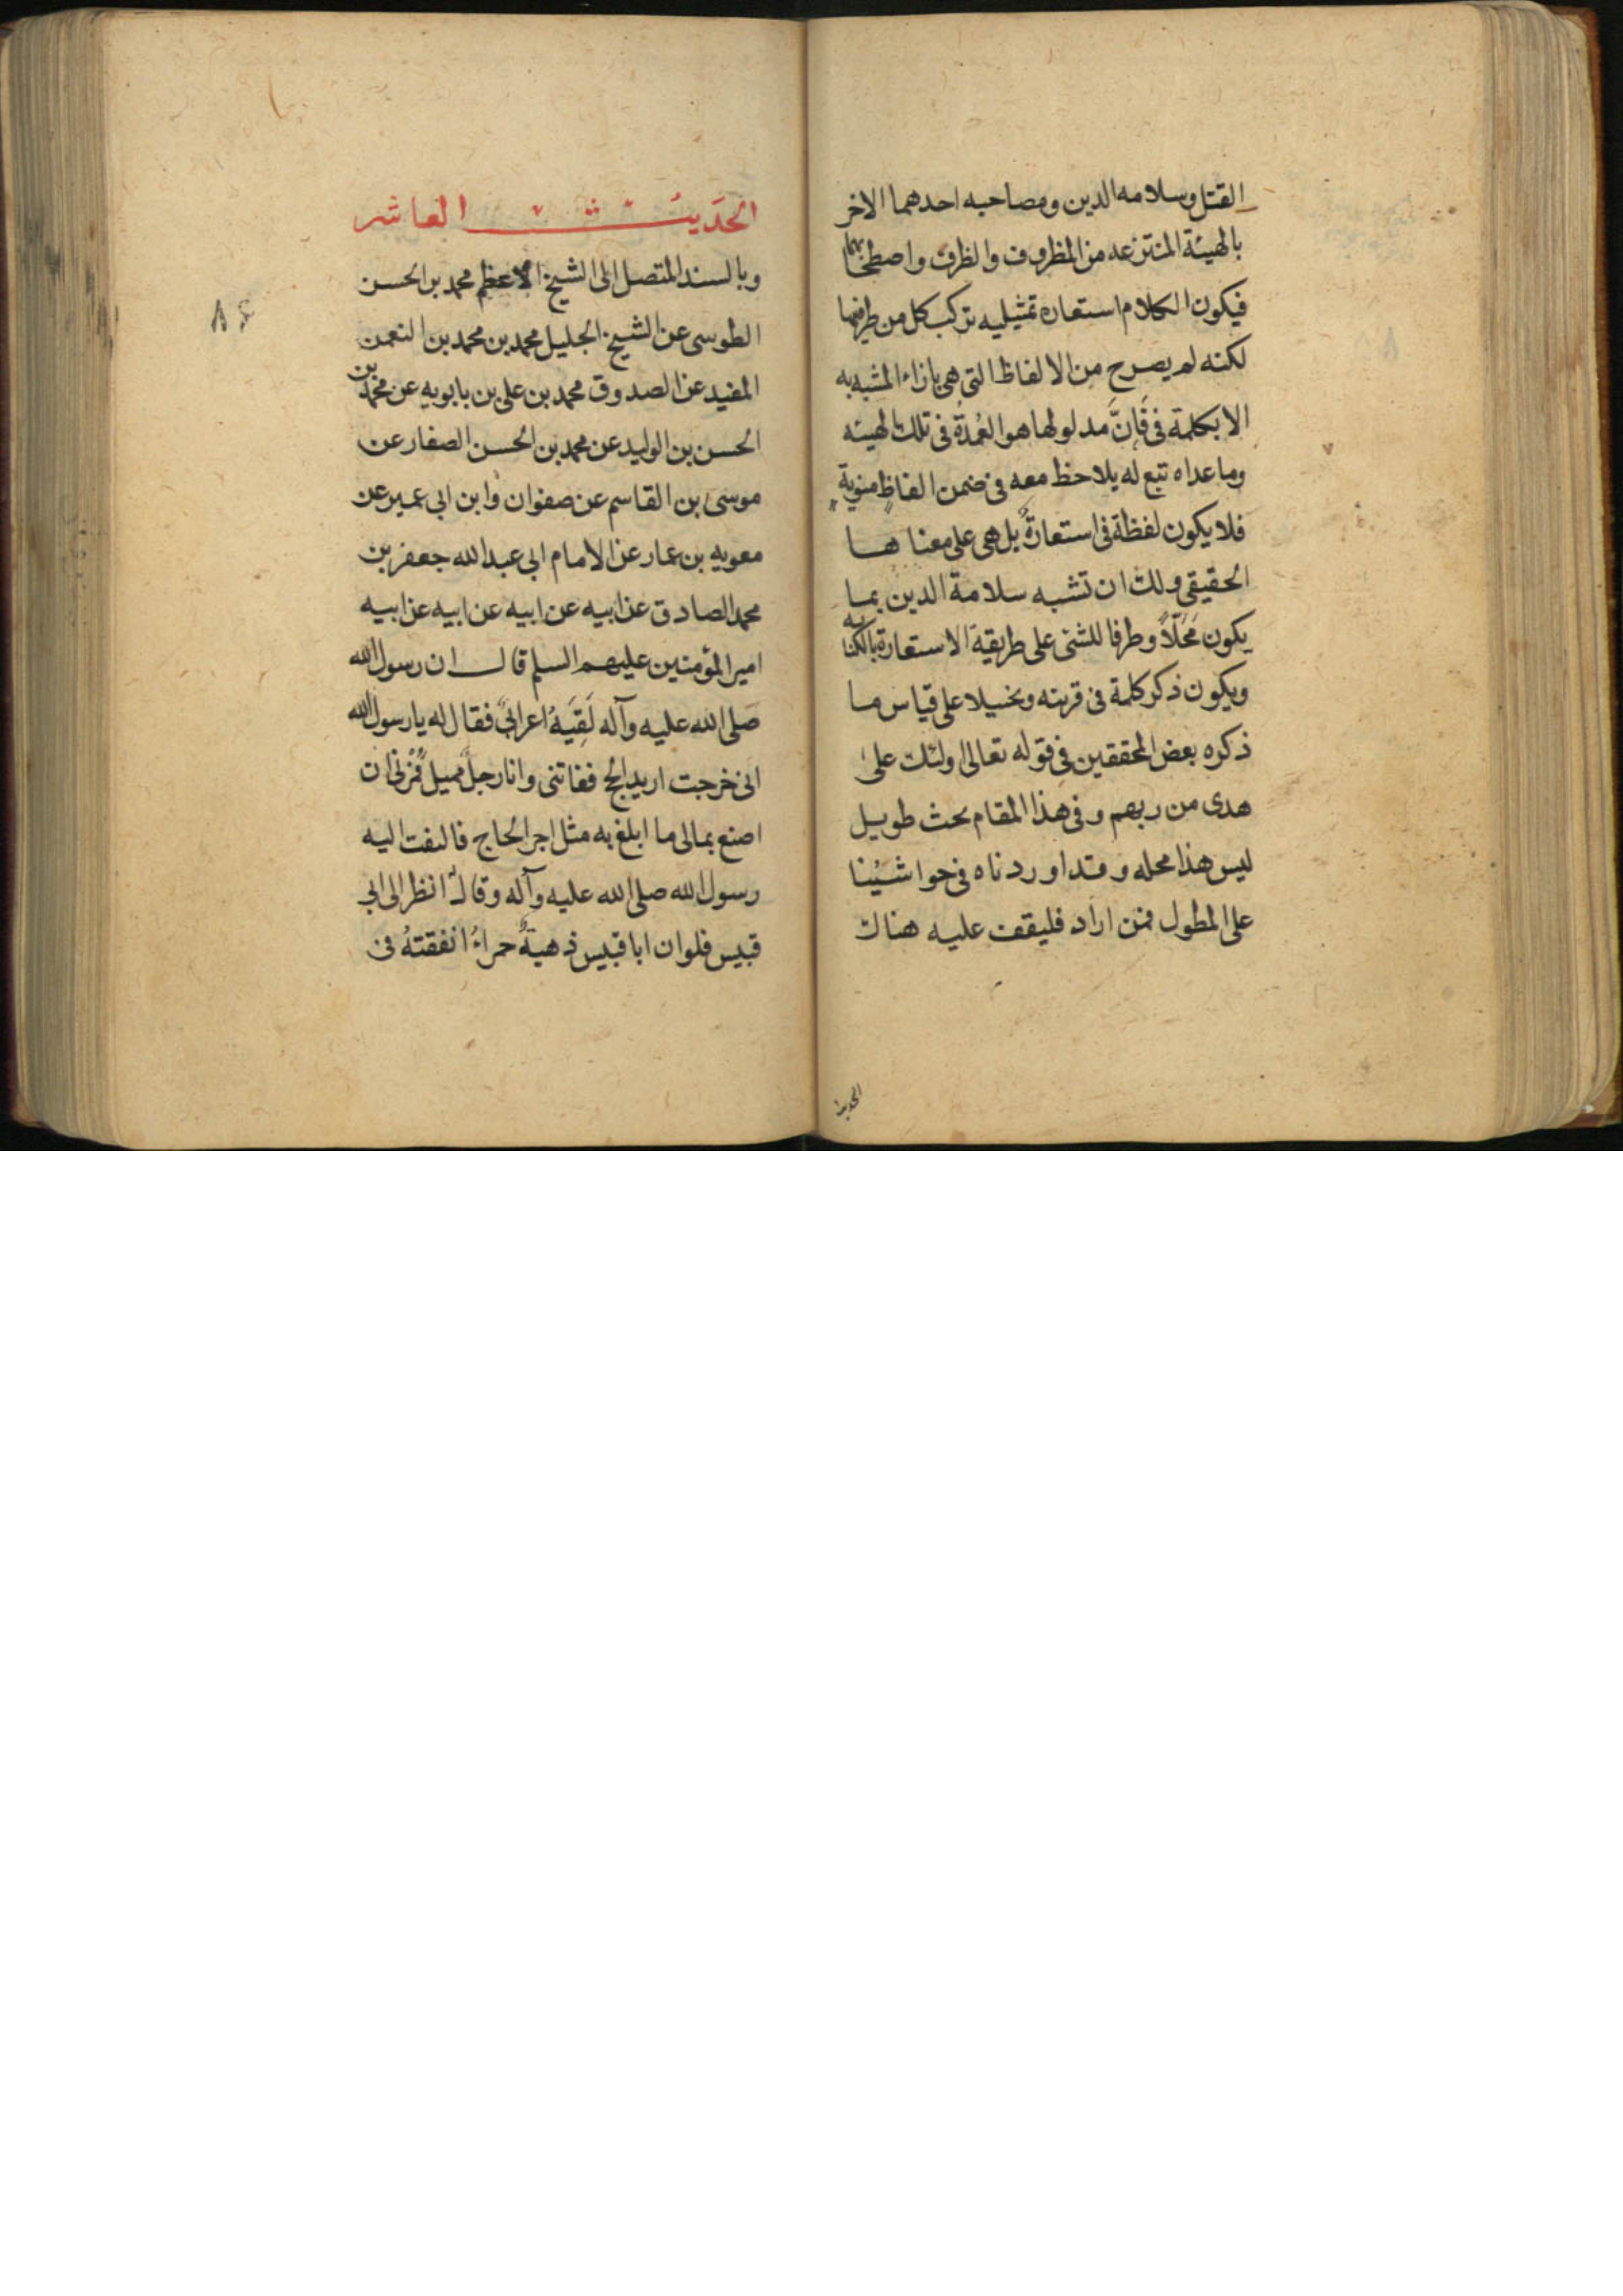 القتل وسلامه الدين ومصاحبه احدهما الاخر
بالهيئة المنتزعه من المظروف والظرف واصطحابهما
فيكون الكلام استعاره تمثيليه تركب كل من طرفيها
لكنه لم يصرح من الالفاظ التى هى بازاء المشبه به
الا بكلمة فى فَاِنَّ مدلولها هو العُمدةُ فى تلك الهيئه
وما عداه تبع له يلاحظ معه فى ضمن الفاظٍ منوية
فلا يكون لفظة فى استعارةً بل هى على معناها
الحقيقى ولك ان تشبه سلامة الدين بما
يكون مَحَلّاً وظرفا للشئ على طريقية الاستعارة بالكنايه
ويكون ذكر كلمة فى قرينه وتخييلا على قياس ما
ذكره بعض المحققين فى قوله تعالى اولئك على
هدى من ربهم وفى هذا المقام بحث طويل
ليس هذا محله وقد اوردناه فى حواشينا
على المطول فمن اراد فليقف عليه هناك
الحديث
الحَديث العاشر
وبالسند المتصل الى الشيخ الاعظم محمد بن الحسن
الطوسى عن الشيخ الجليل محمد بن محمد بن النعمن
المفيد عن الصدوق محمد بن على بن بابويه عن محمد بن
الحسن بن الوليد عن محمد بن الحسن الصفار عن
موسى بن القاسم عن صفوان وابن ابى عمير عن
معويه بن عمار عن الامام ابى عبد الله جعفر بن
محمد الصادق عن ابيه عن ابيه عن ابيه عن ابيه
امير المؤمنين عليهم السلم قال ان رسول الله
صلى الله عليه وآله لَقِيَهُ اعرابىٌ فقال له يا رسول الله
انى خرجت اريد الحج ففاتنى وانا رجل مميل فمُرنى ان
اصنع بمالى ما ابلغ به مثل اجر الحاج فالتفت اليه
رسول الله صلى الله عليه وآله وقال انظر الى ابى
قبيس فلو ان ابا قبيس ذهبةٌ حمراءُ انفقتهُ فى